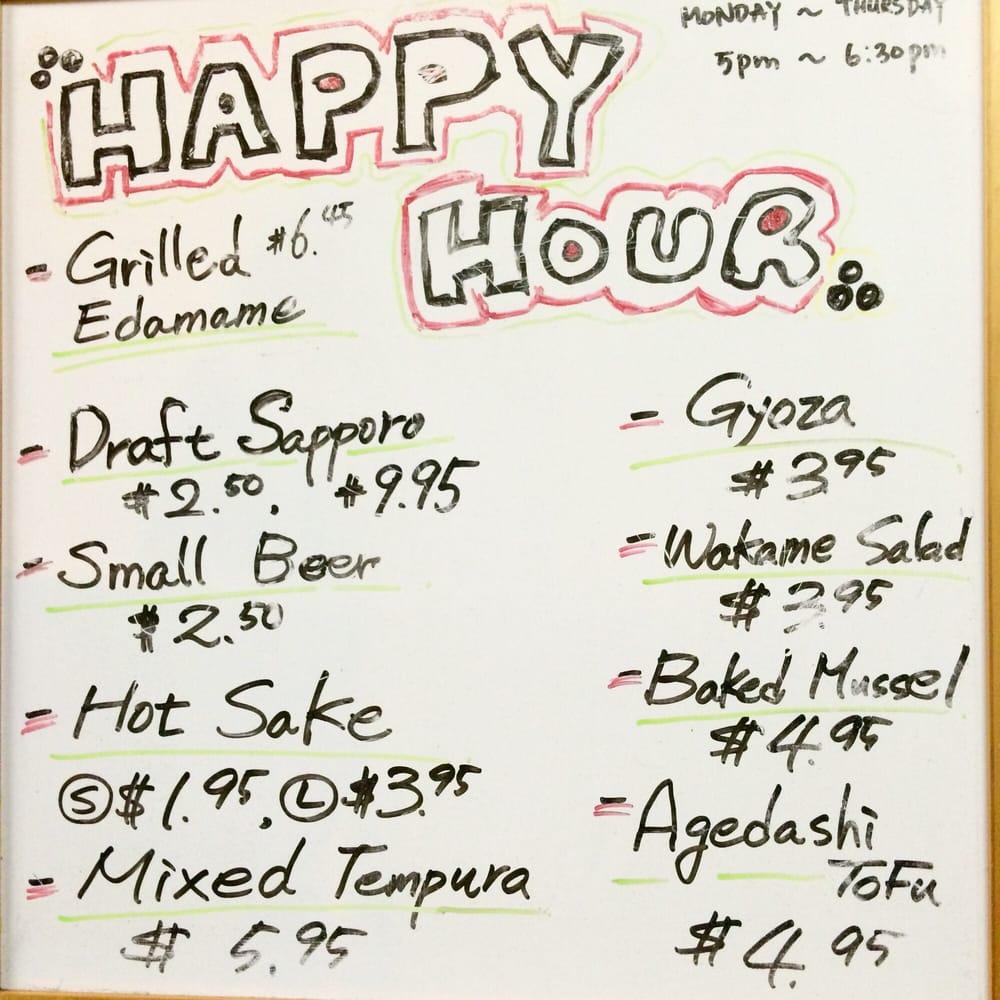 MONDAY ~ THURSDAY
5pm ~ 6:30pm
HAPPY
HOUR
- Grilled $6.45
Edamame
- Draft Sapporo
$2.50, $9.95
- Small Beer
$2.50
- Hot Sake
Ⓢ$1.95, Ⓛ$3.95
- Mixed Tempura
$5.95
- Gyoza
$3.95
- Wakame Salad
$3.95
- Baked Mussel
$4.95
- Agedashi
ToFu
$4.95